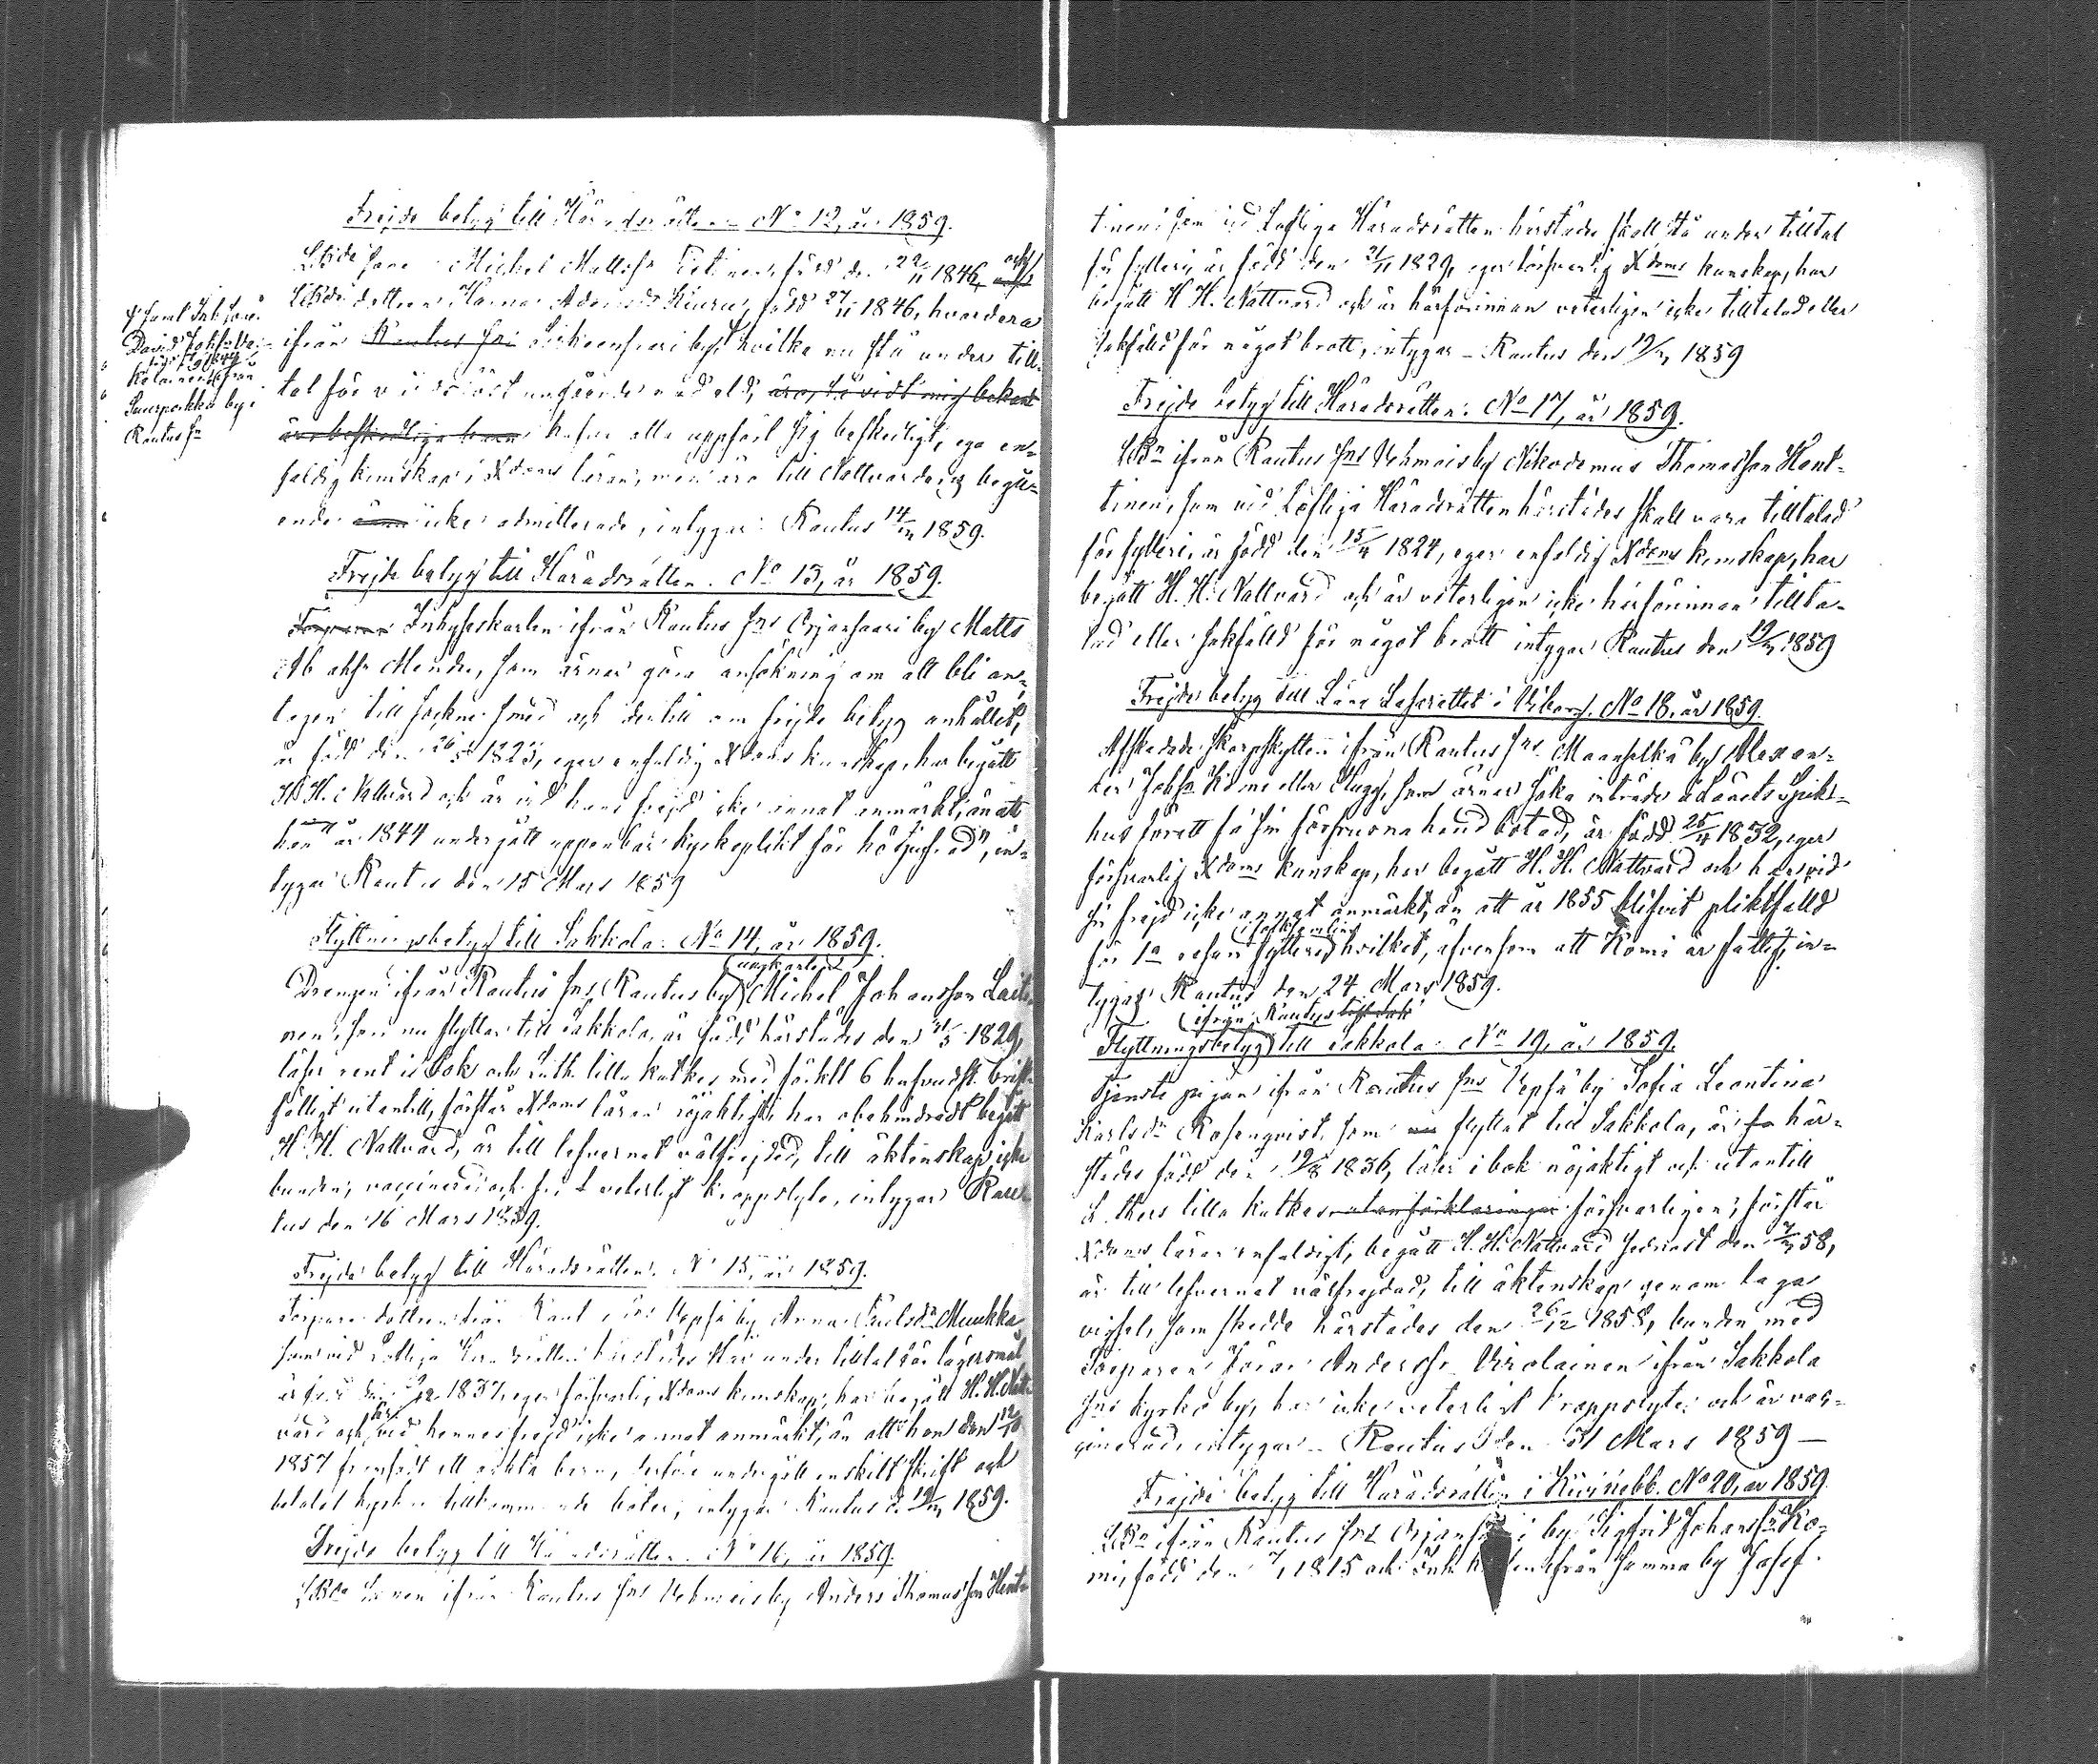 Frejde betyg till Häradsrätten No 12, år 1859.
LBde sone Michel Mattsfn Tiitinen, född den 22/11 1846, och
LBde dottren Maria Adamsdr Kiuru, född 27/11 1846, hvardera
ifrån Rautus sns by, hvilka nu stå under till-
tal för med eld, äro, så vidt mig bekant
hafva alla uppfört sig beskedligt, ega en-
faldig kunskap i Xdoms läran, men äro till Nattvardens begå-
ende ännu icke admitterade, intygar: Rautus 14/III 1859.
samt Inh. sone
David Johsn
född
ifrån
by i
Rautus sn
Frejde betyg till Häradsrätten. No 13, år 1859.
Torparen Inhyseskarlen ifrån Rautus sns Orjansaari by Matts
Abrahsn Mendu, som ärnar göra ansökning om att bli an-
tagen till socknesmed och dertill om frejde betyg anhållit,
är född den 26/5 1823, eger enfaldig Xdoms kunskap, har begått
H. H. Nattvard och är vid hans frejd icke annat anmärkt, än att
han år 1844 undergått uppenbar kyrkoplikt för , in-
tygar Rautus den 15 Mars 1859
Flyttningsbetyg till Sakkola. No 14, år 1859.
(ungkarlen)
Drengen ifrån Rautus sns Rautus by Michel Johansson Laiti-
nen, som nu flyttar till Sakkola, är född härstädes den 31/5 1829,
läser rent i Bok och Luth. lilla katkes med förklt 6 hufvudst.
utantill, förstår Xdoms läran nöjaktigt, har obehindradt begått
H. H. Nattvard, är till lefvernet välfrejdad, till äktenskap icke
bunden, vaccinerad och fri från veterligt kroppslyte, intygar Rau-
tus den 16 Mars 1859.
Frejde betyg till Häradsrätten. No 15, år 1859.
Torpare dottren ifrån Rautus sns Vepsä by Anna Paulsdr Munkka
som vid Loflige Häradsrätten härstädes står under tilltal för lägersmål
är född den 1837, eger försvarlig Xdoms kunskap, har begått H. H. Natt-
vard och är vid hennes frejd icke annat anmärkt, än att hon den 12/10
1857 framfödt ett oäkta barn, derföre undergått enskilt skrift och
betalat kyrkan tillkommande böter, intygar Rautus d. 19/III 1859.
Frejde betyg till Häradsrätten. No 16, år 1859.
LBde sonen ifrån Rautus sns Vehmais by Anders Thomasson Hent-
tinen, som vid Loflige Häradsrätten härstädes skall stå under tilltal
för fylleri, är född den 21/11 1829, eger försvarlig Xdoms kunskap, har
begått H. H. Nattvard och är härförinnan veterligen icke tilltalad eller
sakfälld för något brott, intygar – Rautus den 19/III 1859
Frejde betyg till Häradsrätten. No 17, år 1859.
LBn ifrån Rautus sns Vehmais by Nikodemus Thomasson Hent-
tinen, som vid Loflige Häradsrätten härstädes skall vara tilltalad
för fylleri, är född den 15/4 1824, eger enfaldig Xdoms kunskap, har
begått H. H. Nattvard och är veterligen icke härförinnan tillta-
lad eller sakfälld för något brott intygar Rautus den 19/III 1859
Frejde betyg till Läns Lasarettet i Viborg. No 18. år 1859.
Afskedade skarpskytten ifrån Rautus sns Maanselkä by Alexan-
der Johsn Komi eller Hugg, som ärnar söka inträde å Länets Sjuk-
hus för att få sin förfrusna hand botad, är född 25/4 1832, eger
försvarlig Xdoms kunskap, har begått H. H. Nattvard och har vid
sin frejd icke annat anmärkt, än att år 1855 blifvit pliktfälld
för 1a resan fylleri, hvilket, äfvensom att Komi är fattig, in-
tygar Rautus den 24 Mars 1859.
(ifrån Rautus
Flyttningsbetyg) till Sakkola. No 19, år 1859.
Tjenste pigan ifrån Rautus sns Vepsä by Sofia Leontina
Karlsdr Rosenqvist, som nu flyttat till Sakkola, är fo här-
städes född den 19/8 1836, läser i bok nöjaktigt och utantill
Luthers lilla katkes utan förklaringar försvarligen, förstår
Xdoms läran enfaldigt, begått H. H. Nattvard sednast den 58,
är till lefvernet välfrejdad, till äktenskap genom laga
vigsel, som skedde härstädes den 26/12 1858, bunden med
Torparen Andersfn Virolainen ifrån Sakkola
sns kyrko by, har icke veterligt kroppslyte och är vac-
cinerad, intygar – Rautus den 31 Mars 1859 –
Frejde betyg till Häradsrätten i Kivinebb. No 20, år 1859.
LBn ifrån Rautus sns Orjansaari by Sigfrid Johansfn Ko-
mi, född den 1815 och Inh. karlen ifrån samma by Josef